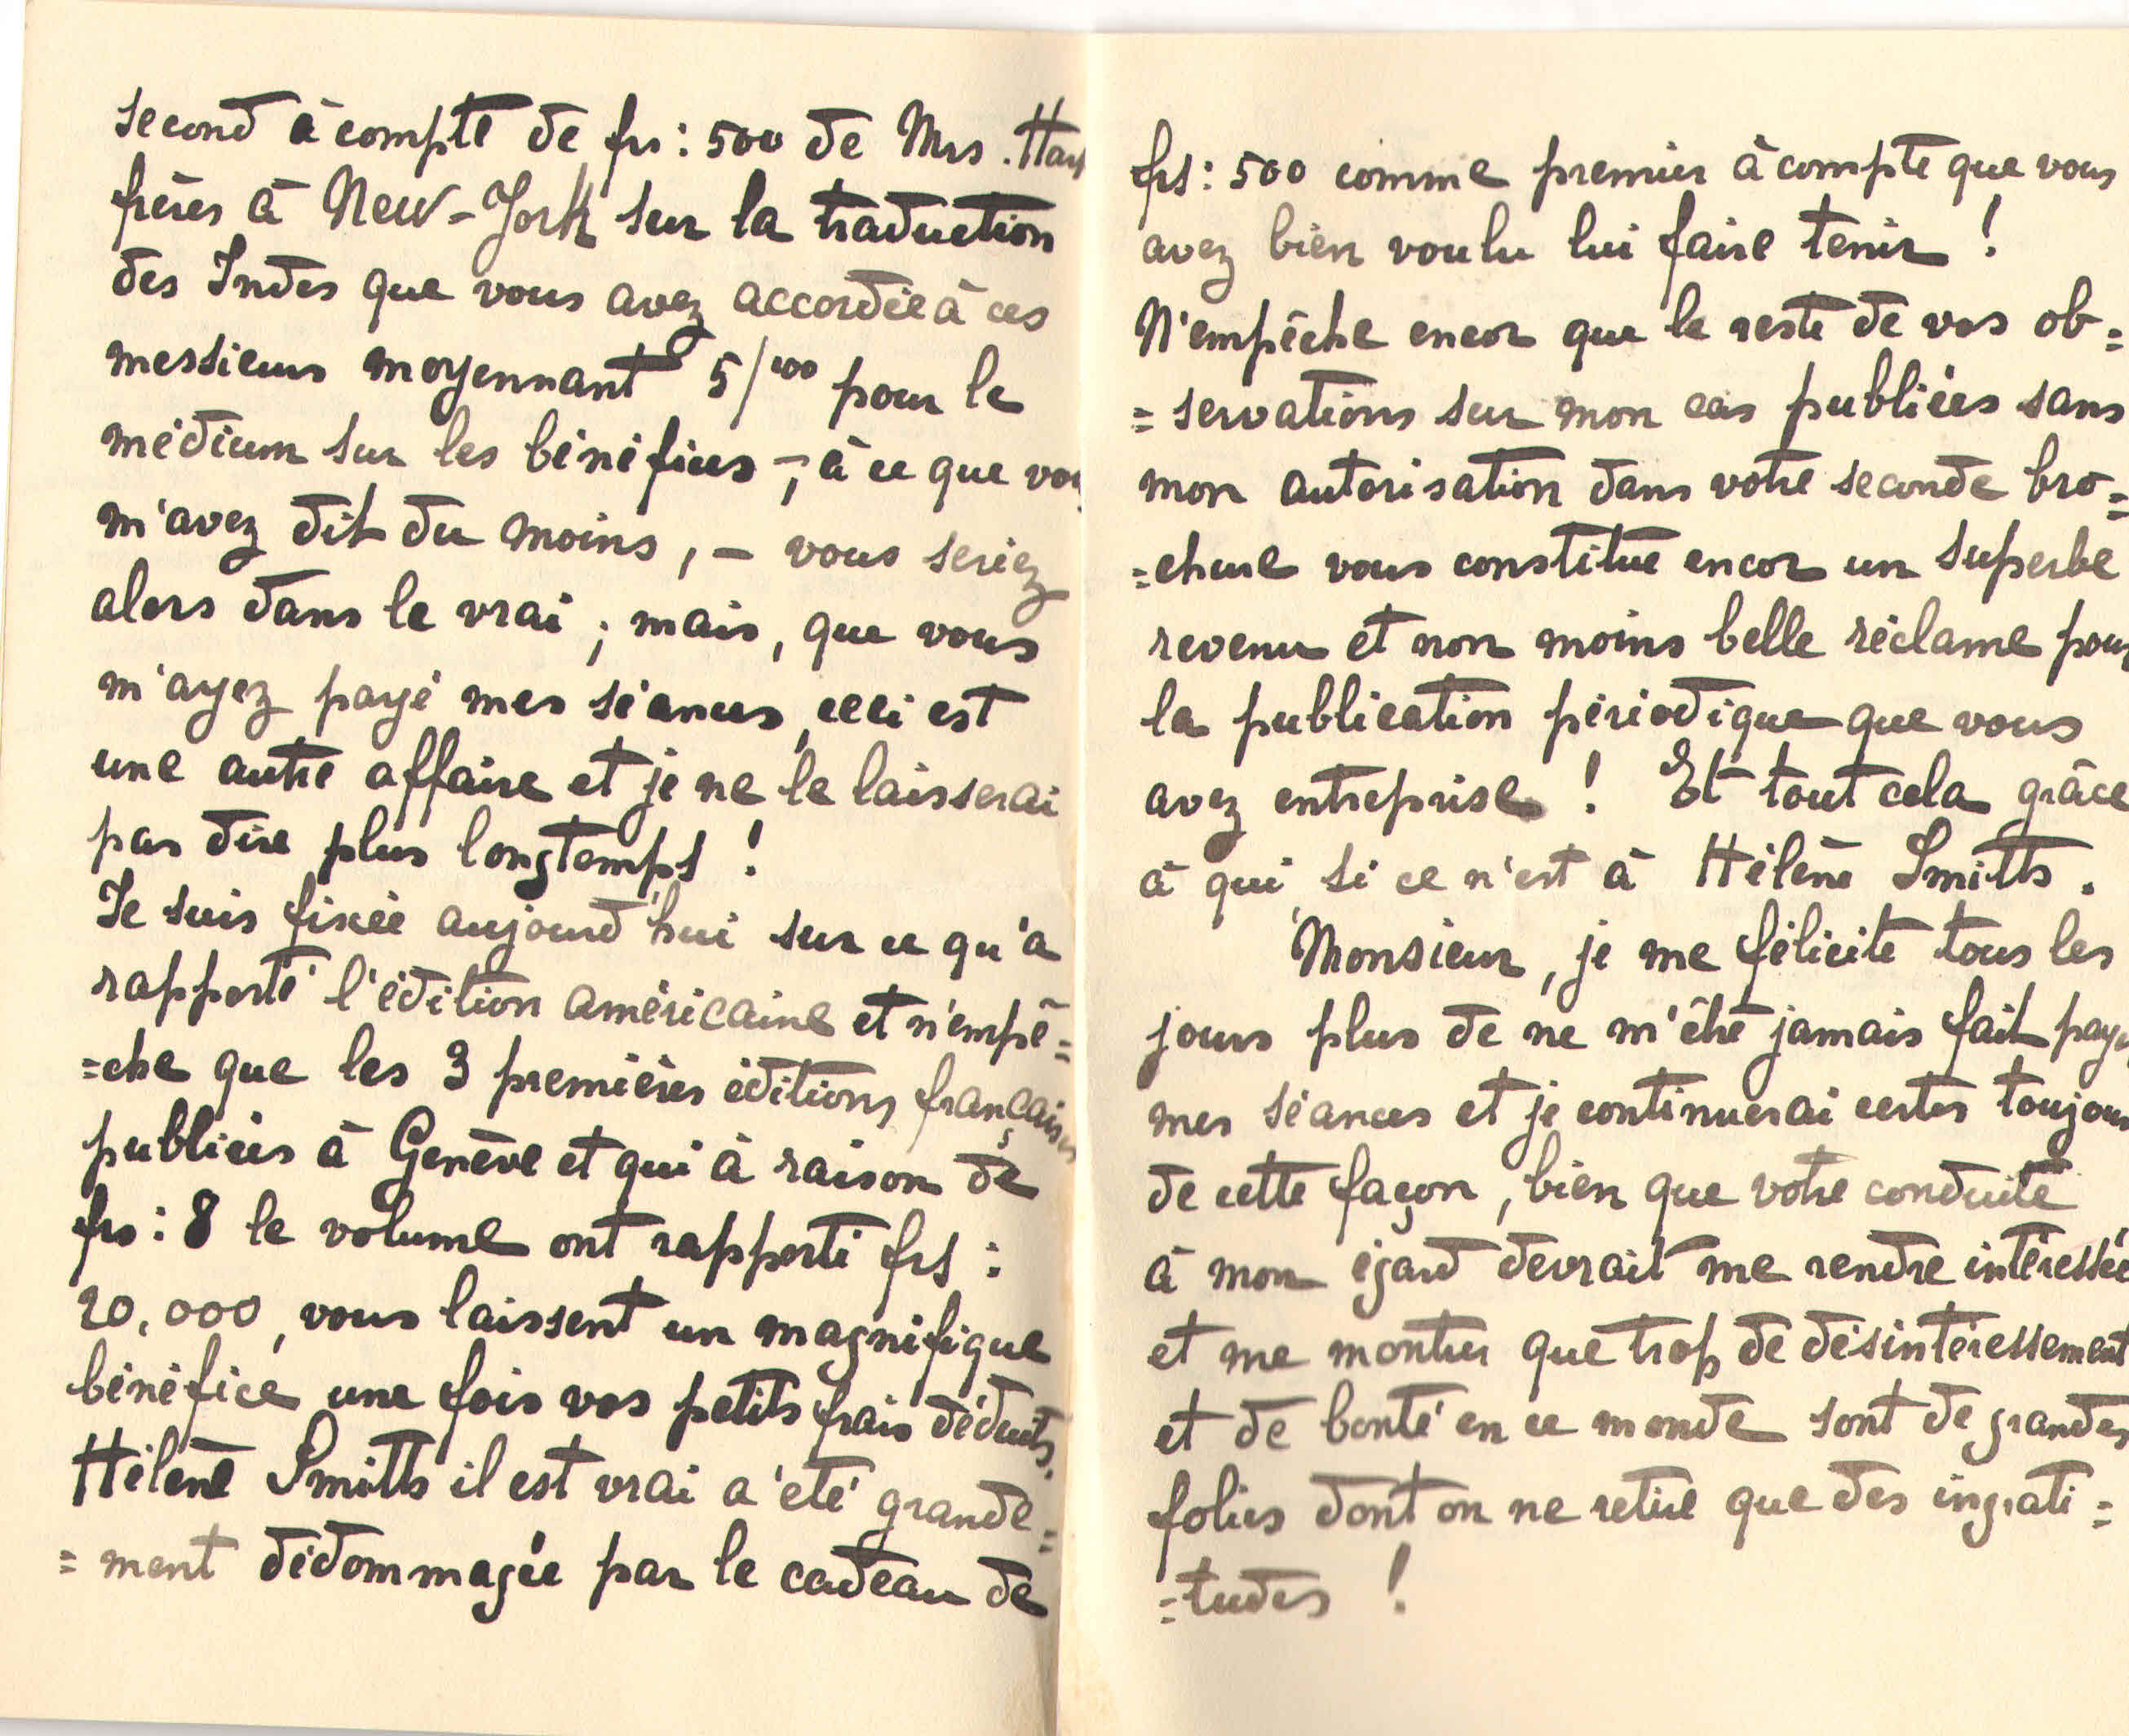 second à compte de frs: 500 de Mrs. Harp
frères à New-York sur la traduction
des Indes que vous avez accordée à ces
messieurs moyennant 5/100 pour le
médium sur les bénéfices –, à ce que vou
m'avez dit du moins, – vous seriez
alors dans le vrai ; mais, que vous
m'ayez payé mes séances, ceci est
une autre affaire et je ne le laisserai
pas dire plus longtemps !
Je suis fixée aujourd'hui sur ce qu'a
rapporté l'édition américaine et n'empê=
=che que les 3 premières éditions françaises
publiées à Genève et qui à raison de
frs: 8 le volume ont rapporté frs :
20,000, vous laissent un magnifique
bénéfice une fois vos petits frais déduits.
Hélène Smitts il est vrai a été grande=
=ment dédommagée par le cadeau de
frs: 500 comme premier à compte que vous
avez bien voulu lui faire tenir !
N'empêche encor que le reste de vos ob=
=servations sur mon cas publiées sans
mon autorisation dans votre seconde bro=
=chure vous constitue encor un superbe
revenu et non moins belle réclame pour
la publication périodique que vous
avez entreprise ! Et tout cela grâce
à qui, si ce n'est à Hélène Smitts.
Monsieur, je me félicite tous les
jours plus de ne m'être jamais fait paye
mes séances et je continuerai certes toujou
de cette façon, bien que votre conduite
à mon égard devrait me rendre intéressée
et me montrer que trop de désintéressement
et de bonté en ce monde sont de grandes
folies dont on ne retire que des ingrati=
=tudes !